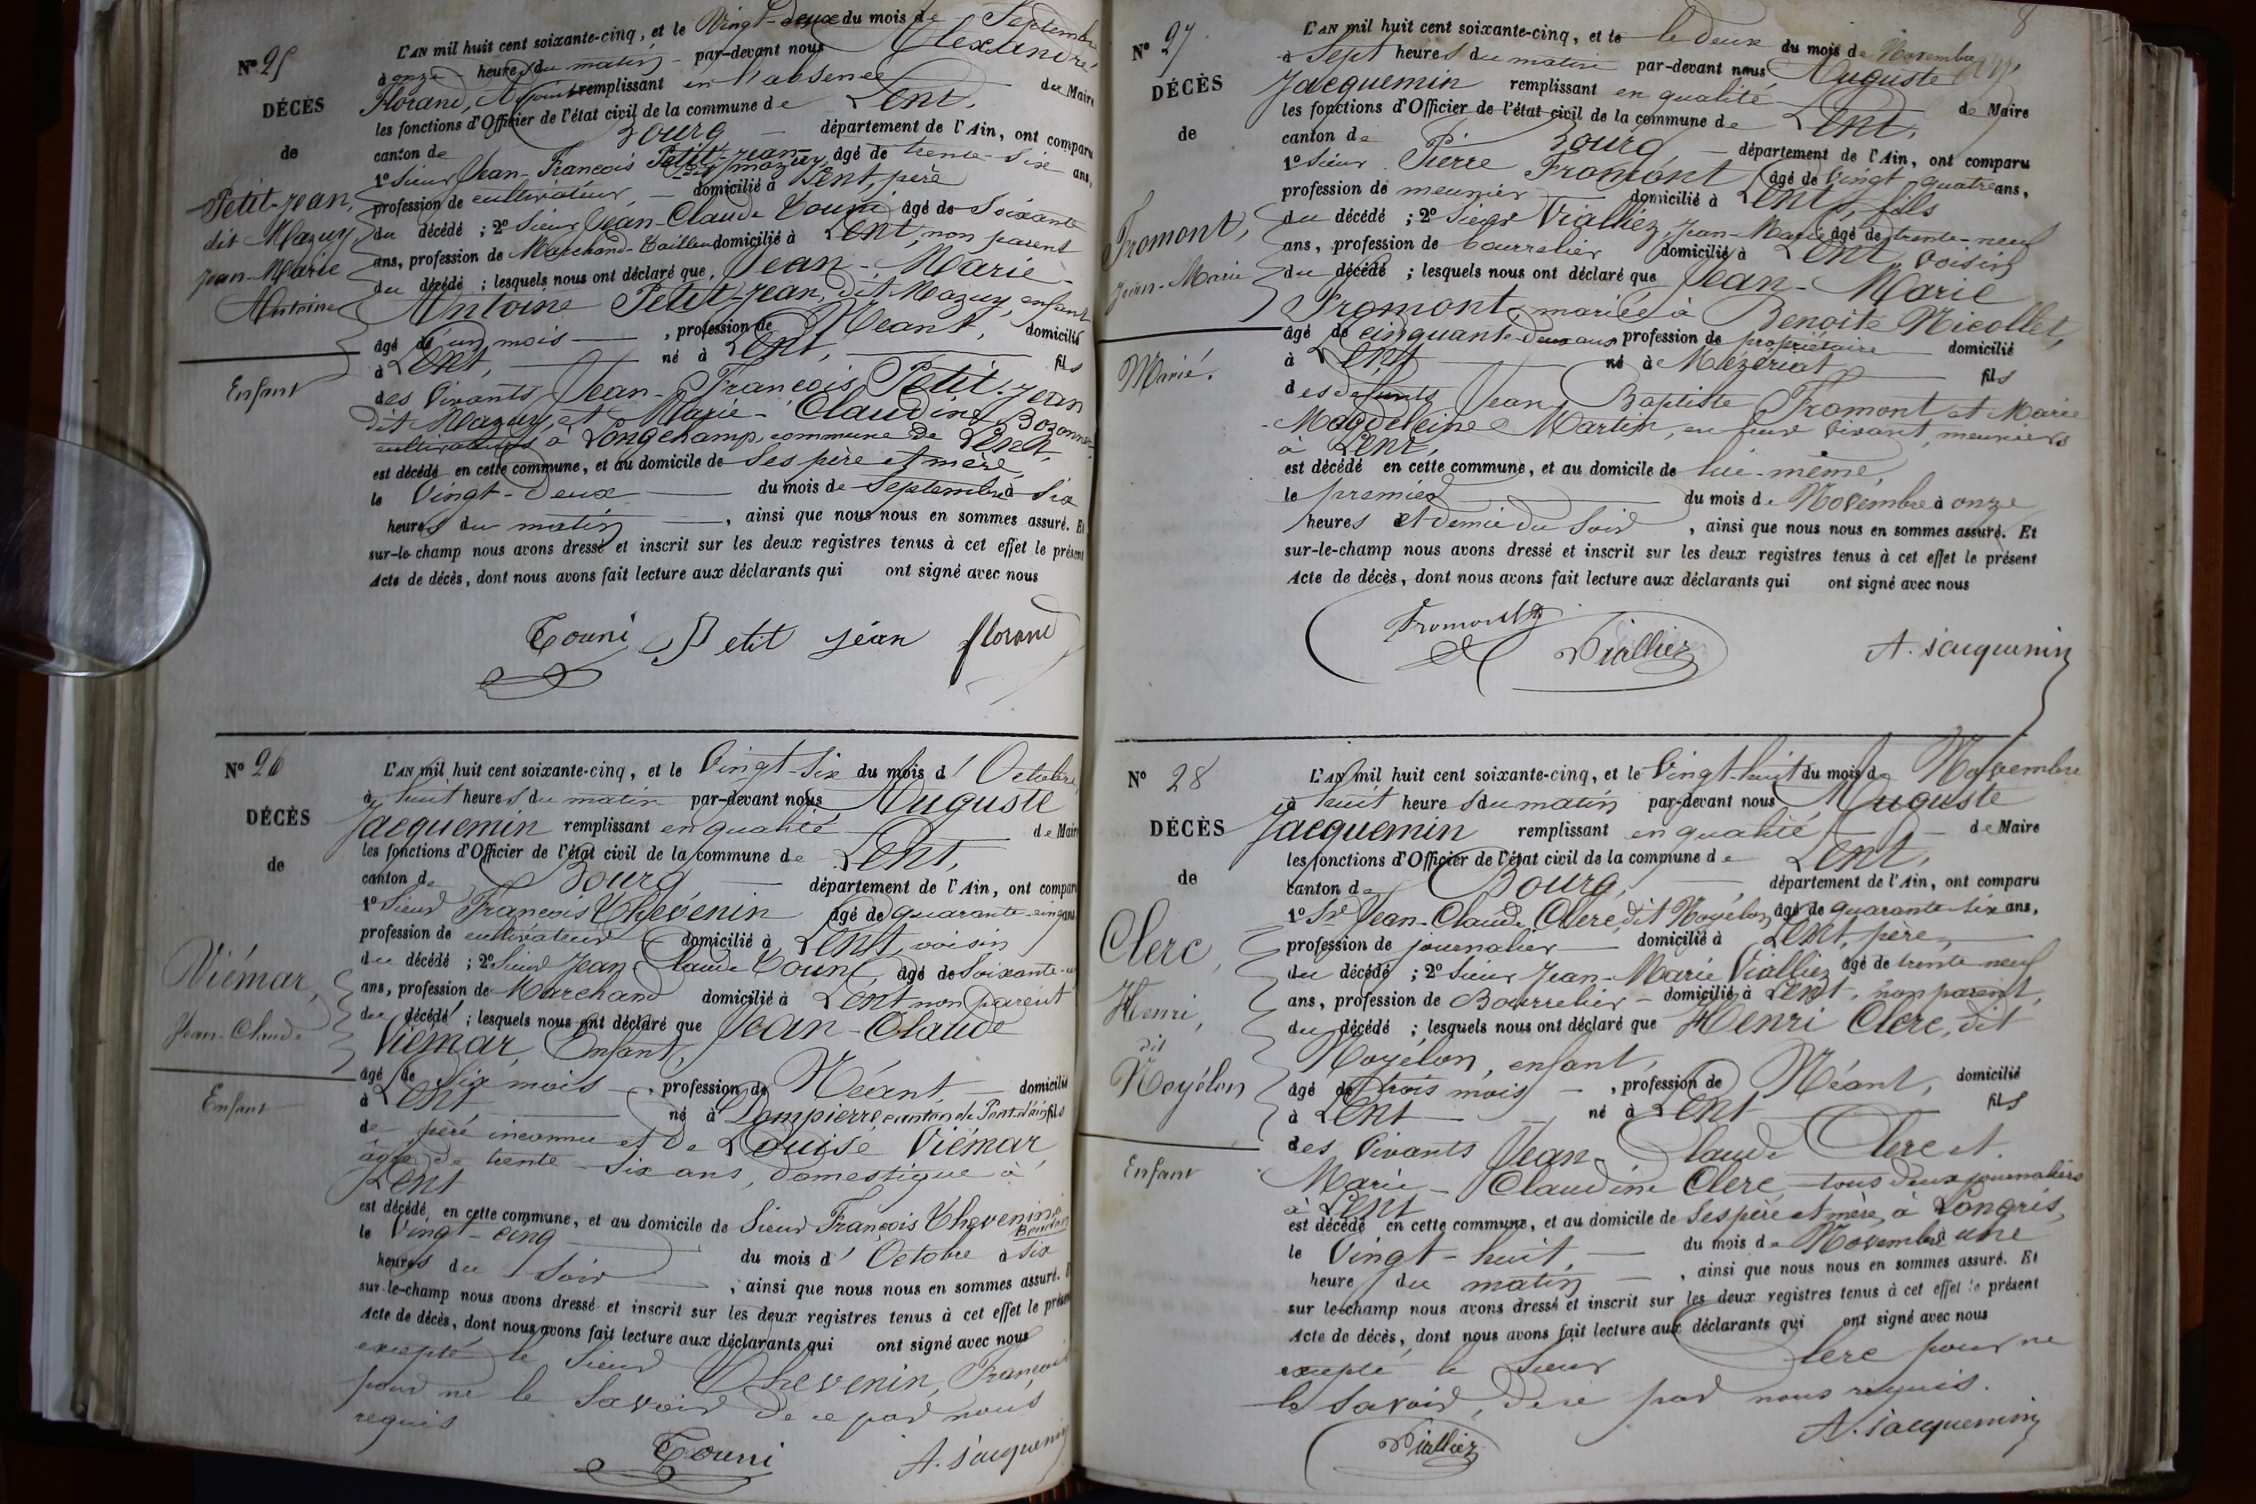 N° 25
DÉCÈS
de
Petit-Jean,
dit Mazuy
Jean-Marie
Antoine
Enfant
L'AN mil huit cent soixante-cinq, et le Vingt-deux du mois de Septembre
à onze heures du matin par-devant nous Alexandre
Florand, Adjoint remplissant en l'absence du Maire
les fonctions d'Officier de l'état civil de la commune de Lent,
canton de Bourg département de l'Ain, ont comparu
1° Sieur Jean-François Petit-Jean dit Mazuy, âgé de trente-six ans,
profession de cultivateur, domicilié à Lent, père
du décédé ; 2° Sieur Jean-Claude Touni âgé de Soixante
ans, profession de Marchand-Tailleur domicilié à Lent, non parent
du décédé ; lesquels nous ont déclaré que Jean-Marie-
Antoine Petit-Jean, dit Mazuy, enfant
âgé de un mois , profession de Néant, domicilié
à Lent, né à Lent, fils
des Vivants Jean-François Petit-Jean
dit Mazuy, et Marie-Claudine Bozonnet
cultivateurs à Longchamp, commune de Lent,
est décédé en cette commune, et au domicile de Ses père et mère,
le Vingt-deux du mois de Septembre à Six
heures du matin , ainsi que nous nous en sommes assuré. Et
sur-le-champ nous avons dressé et inscrit sur les deux registres tenus à cet effet le présent
Acte de décès, dont nous avons fait lecture aux déclarants qui ont signé avec nous
Touni Petit jean florand
N° 26
DÉCÈS
de
Viémar,
Jean-Claude
Enfant
L'AN mil huit cent soixante-cinq, et le Vingt-Six du mois d'Octobre
à huit heures du matin par-devant nous Auguste
Jacquemin remplissant en qualité de Maire
les fonctions d'Officier de l'état civil de la commune de Lent,
canton de Bourg département de l'Ain, ont comparu
1° Sieur François Chevenin âgé de quarante-cinq ans
profession de cultivateur domicilié à Lent, voisin
du décédé ; 2° Sieur Jean Claude Touni, âgé de Soixante
ans, profession de Marchand domicilié à Lent non parent
du décédé ; lesquels nous ont déclaré que Jean-Claude
Viémar, Enfant,
âgé de Six mois , profession de Néant domicilié
à Lent né à Dompierre, canton de Pont-d'Ain fils
de père inconnu et de Louise Viémar
âgée de trente-six ans, domestique à
Lent
est décédé en cette commune, et au domicile de Sieur François Chevenin
le Vingt-cinq du mois d'Octobre à Six
heures du Soir , ainsi que nous nous en sommes assuré.
sur-le-champ nous avons dressé et inscrit sur les deux registres tenus à cet effet le présent
Acte de décès, dont nous avons fait lecture aux déclarants qui ont signé avec nous
excepté le Sieur Chevenin, François
pour ne le Savoir de ce par nous
requis
Touni A. Jacquemin
8
N° 27
DÉCÈS
de
Fromont,
Jean-Marie
Marié.
L'AN mil huit cent soixante-cinq, et le le deux du mois de Novembre
à Sept heures du matin par-devant nous Auguste
Jacquemin remplissant en qualité de Maire
les fonctions d'Officier de l'état civil de la commune de Lent,
canton de Bourg département de l'Ain, ont comparu
1° Sieur Pierre Fromont âgé de Vingt quatre ans,
profession de meunier domicilié à Lent, fils
du décédé ; 2° Sieur Vialliez, Jean-Marie âgé de trente-neuf
ans, profession de bourrelier domicilié à Lent, Voisin
du décédé ; lesquels nous ont déclaré que Jean-Marie
Fromont, marié à Benoite Nicollet,
âgé de cinquante-deux ans profession de propriétaire domicilié
à Lent né à Mézériat fils
des défunts Jean Baptiste Fromont et Marie
Magdeleine Martin, en leur Vivant, meuniers
à Lent,
est décédé en cette commune, et au domicile de lui-même,
le premier du mois de Novembre à onze
heures et demie du Soir , ainsi que nous nous en sommes assuré. Et
sur-le-champ nous avons dressé et inscrit sur les deux registres tenus à cet effet le présent
Acte de décès, dont nous avons fait lecture aux déclarants qui ont signé avec nous
Fromont Vialliez A. Jacquemin
N° 28
DÉCÈS
de
Clerc,
Henri,
dit
Noyélon
Enfant
L'AN mil huit cent soixante-cinq, et le Vingt-huit du mois de Novembre
à huit heures du matin par-devant nous Auguste
Jacquemin remplissant en qualité de Maire
les fonctions d'Officier de l'état civil de la commune de Lent,
canton de Bourg, département de l'Ain, ont comparu
1° Sr Jean-Claude Clerc, dit Noyélon âgé de quarante-six ans,
profession de journalier domicilié à Lent, père,
du décédé ; 2° Sieur Jean-Marie Vialliez âgé de trente-neuf
ans, profession de Bourrelier domicilié à Lent, non parent,
du décédé ; lesquels nous ont déclaré que Henri Clerc, dit
Noyélon, enfant,
âgé de trois mois , profession de Néant, domicilié
à Lent né à Lent fils
des Vivants Jean Claude Clerc et
Marie-Claudine Clerc, tous deux journaliers
à Lent
est décédé en cette commune, et au domicile de Ses père et mère, à Longris,
le Vingt-huit, du mois de Novembre à une
heure du matin , ainsi que nous nous en sommes assuré. Et
sur-le-champ nous avons dressé et inscrit sur les deux registres tenus à cet effet le présent
Acte de décès, dont nous avons fait lecture aux déclarants qui ont signé avec nous
excepté le Sieur Clerc pour ne
le Savoir, de ce par nous requis.
Vialliez A. Jacquemin